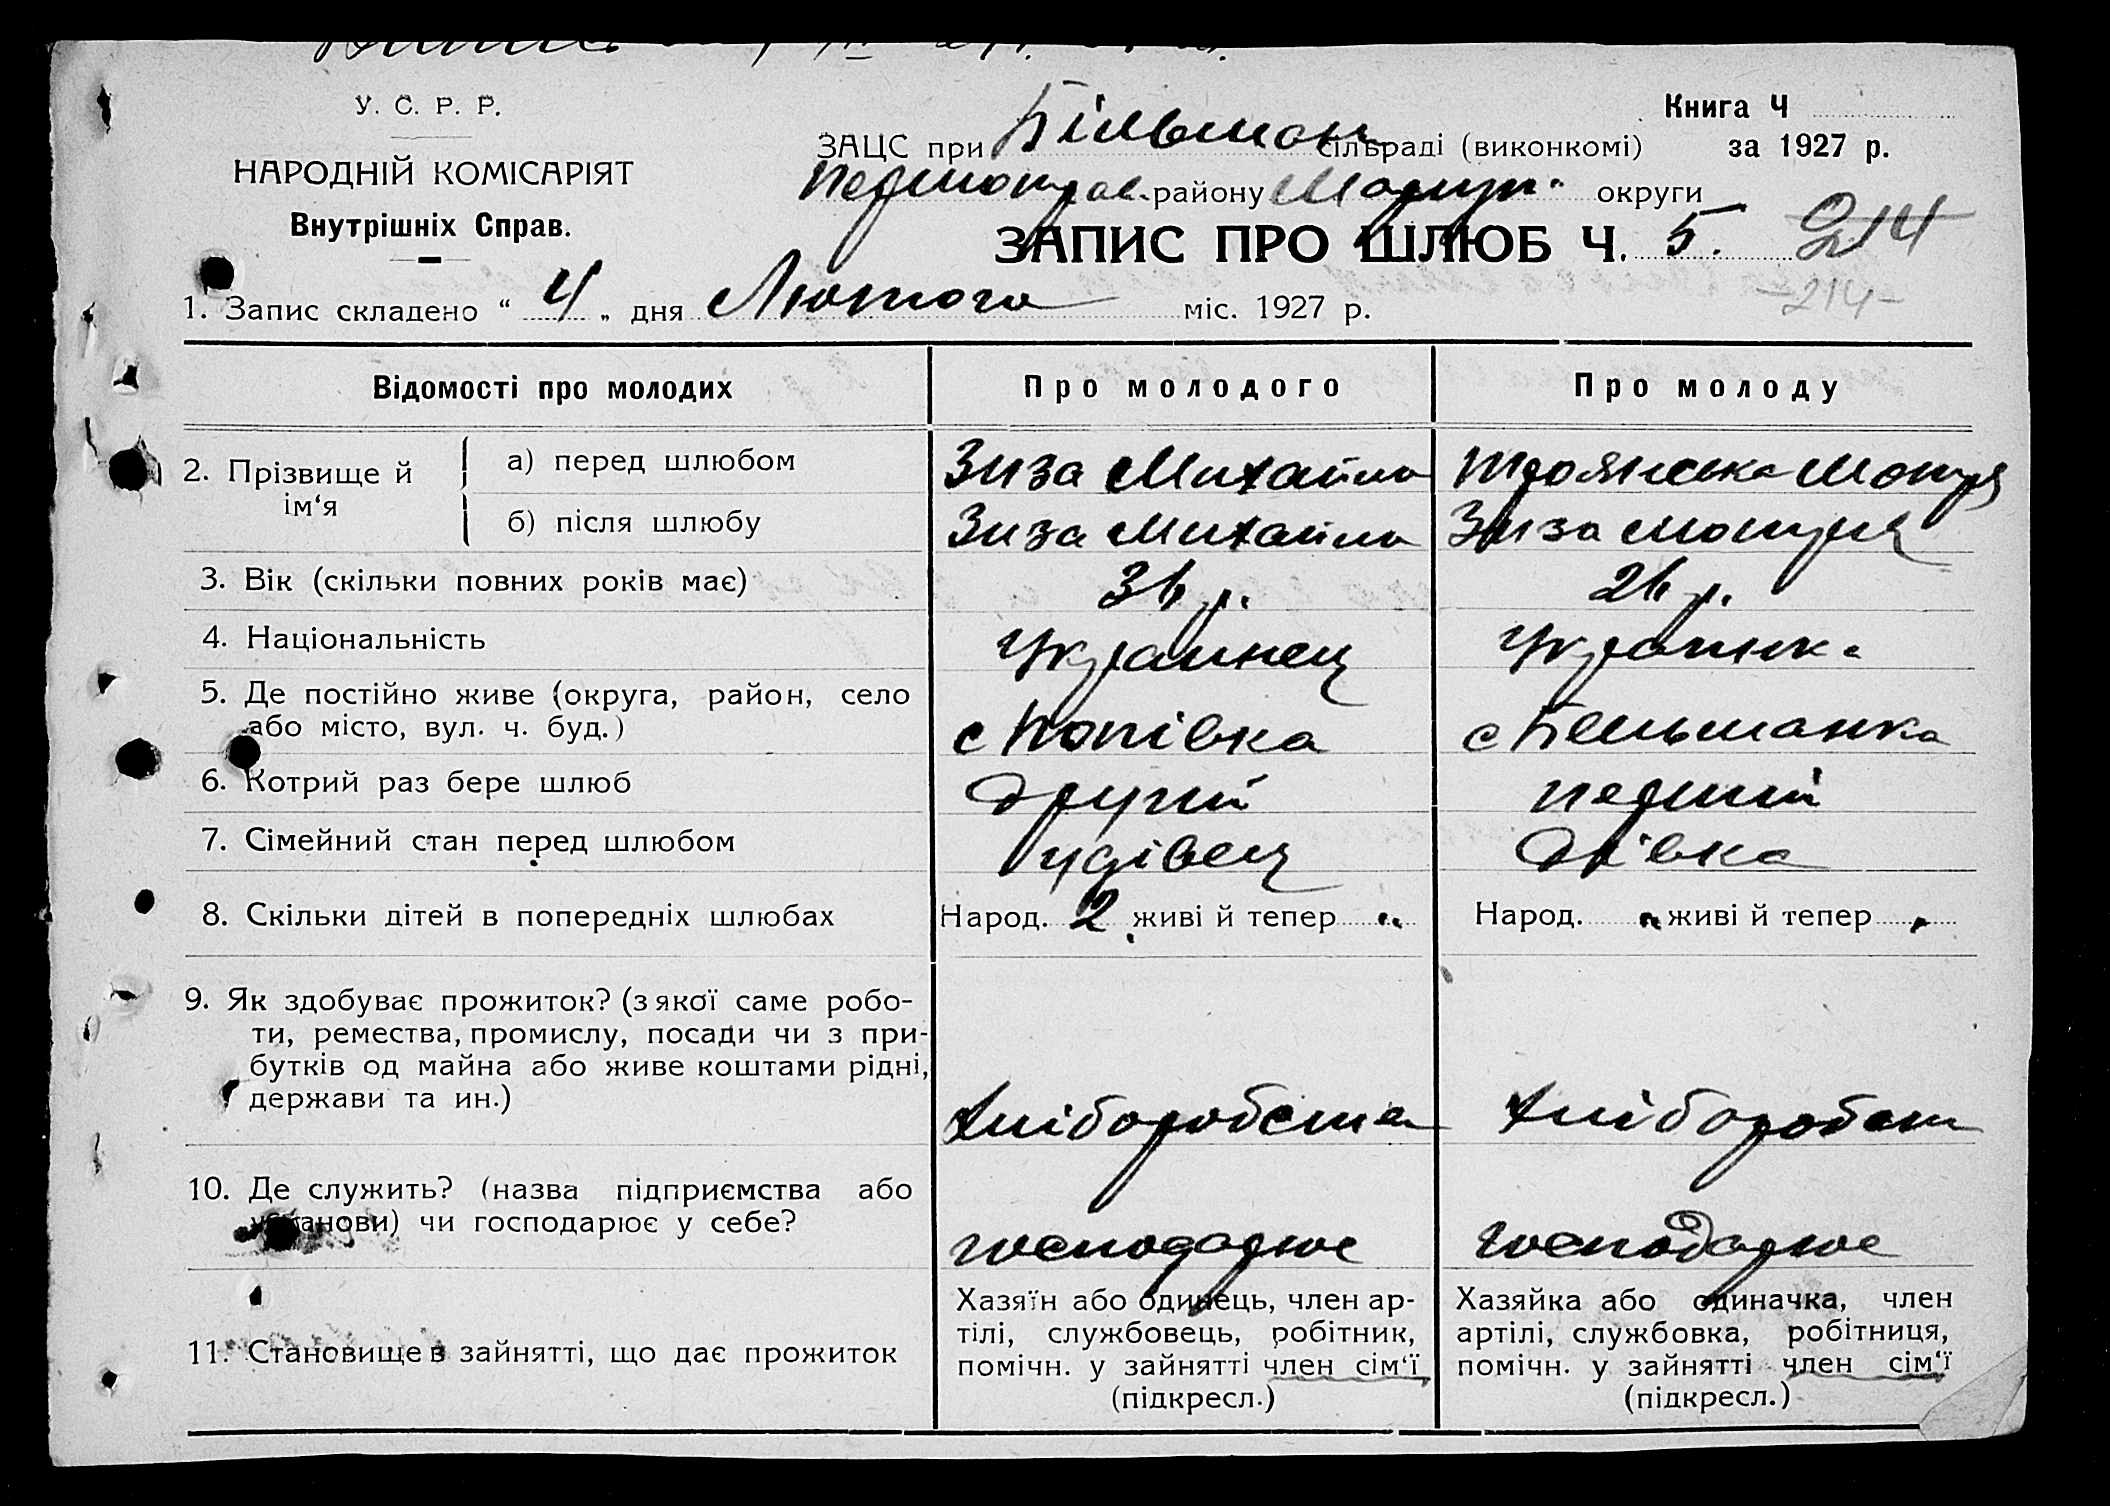 У. С. Р. Р.
НАРОДНІЙ КОМІСАРІЯТ
Внутрішніх Справ.
Книга Ч
за 1927 р.
ЗАЦС при Більман сільраді (виконкомі)
району Мариуп. округи
ЗАПИС ПРО ШЛЮБ Ч. 5. 214
-214-
1. Запис складено “ 4 „ дня Лютого міс. 1927 р.
Відомості про молодих
Про молодого
Про молоду
2. Прізвище й ім‘я
а) перед шлюбом
Зиза Михайло
Троянська Мотря
б) після шлюбу
Зиза Михайло
Зиза Мотря
3. Вік (скільки повних років має)
36 р.
26 р.
4. Національність
Украинец
Украинка
5. Де постійно живе (округа, район, село
або місто, вул. ч. буд.)
с Попівка
с Бельманка
6. Котрий раз бере шлюб
другий
перший
7. Сімейний стан перед шлюбом
удівец
дівка
8. Скільки дітей в попередніх шлюбах
Народ. 2 живі й тепер „
Народ. „ живі й тепер „
9. Як здобуває прожиток? (з якої саме робо-
ти, ремества, промислу, посади чи з при-
бутків од майна або живе коштами рідні,
держави та ин.)
хліборобства
хліборобст
10. Де служить? (назва підприємства або
установи) чи господарює у себе?
господарює
господарює
11. Становище в зайнятті, що дає прожиток
Хазяїн або одинець, член ар-
тілі, службовець, робітник,
помічн. у зайнятті член сім‘ї
(підкресл.)
Хазяйка або одиначка, член
артілі, службовка, робітниця,
помічн. у зайнятті член сім‘ї
(підкресл.)